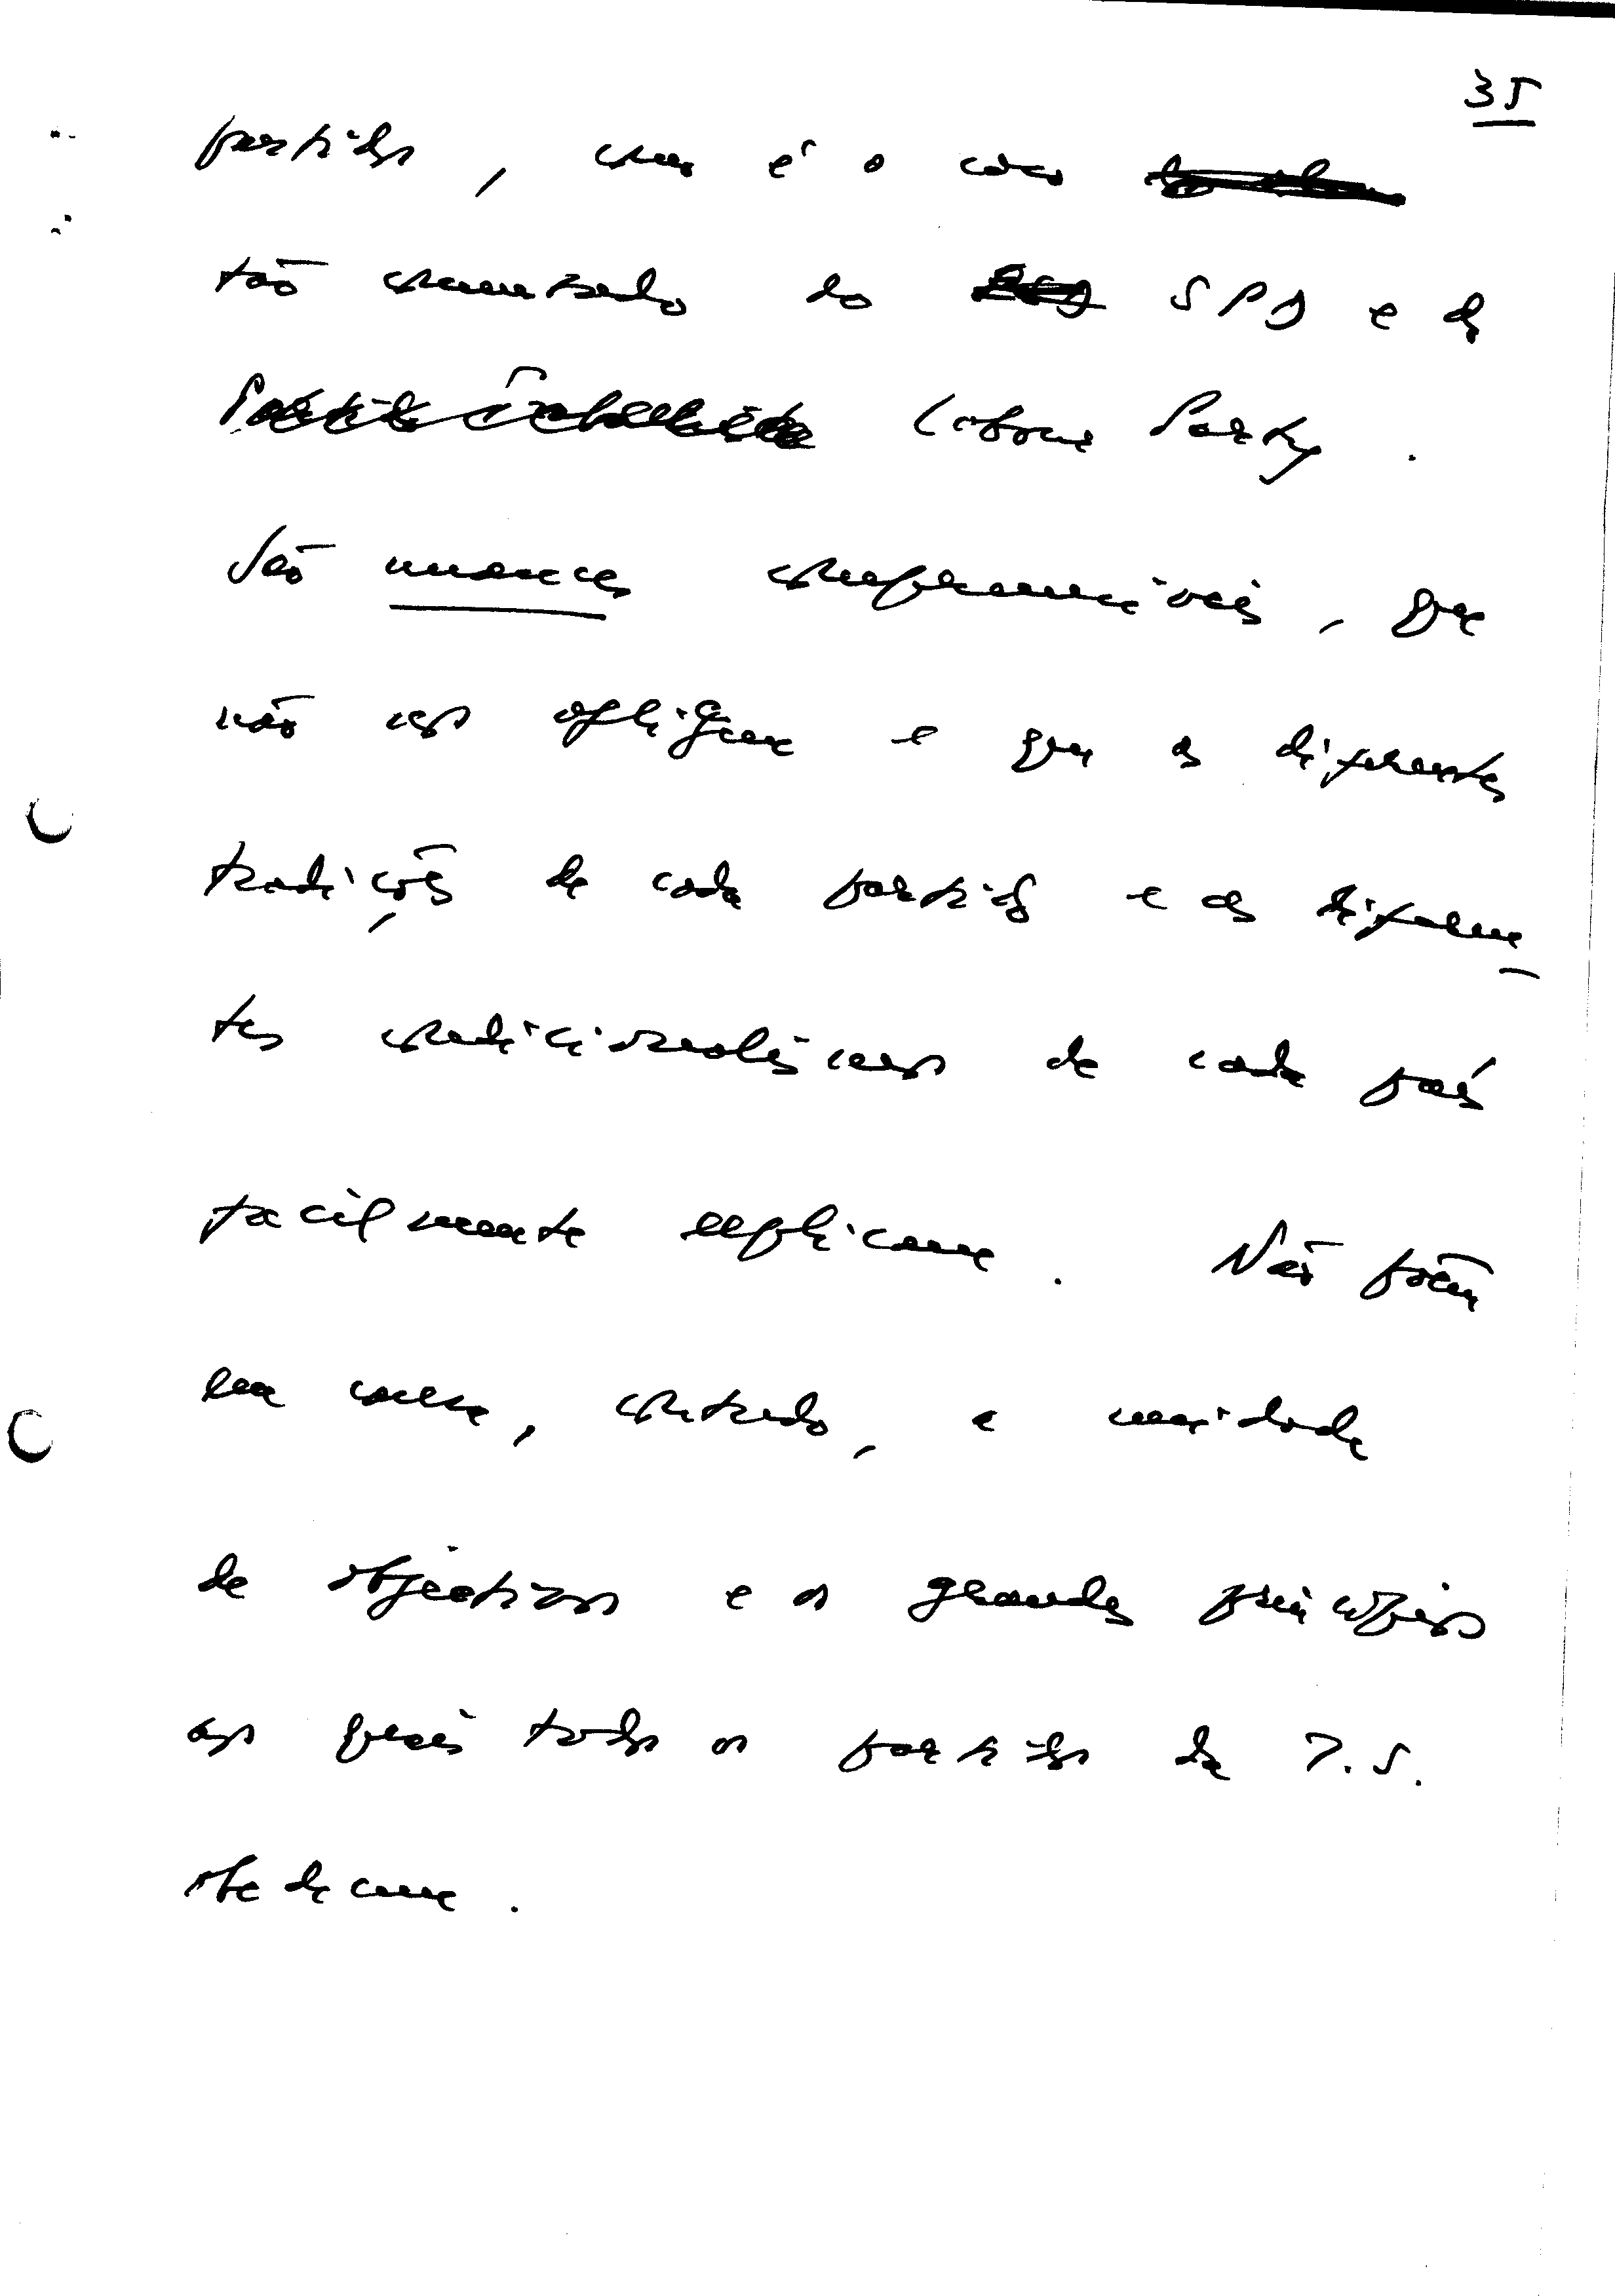 35
partidos, como é o caso
tão comentado do SPD e do
Labour Party.
São nuances compreensíveis, que
não nos afligem e que as diferentes
tradições de cada partido e as diferen-
tes condicionalismos de cada país
facilmente explicam. Não põem
em causa, contudo, a unidade
de objectivos e os grandes princípios
aos quais todos os partidos da I.S.
obedecem.